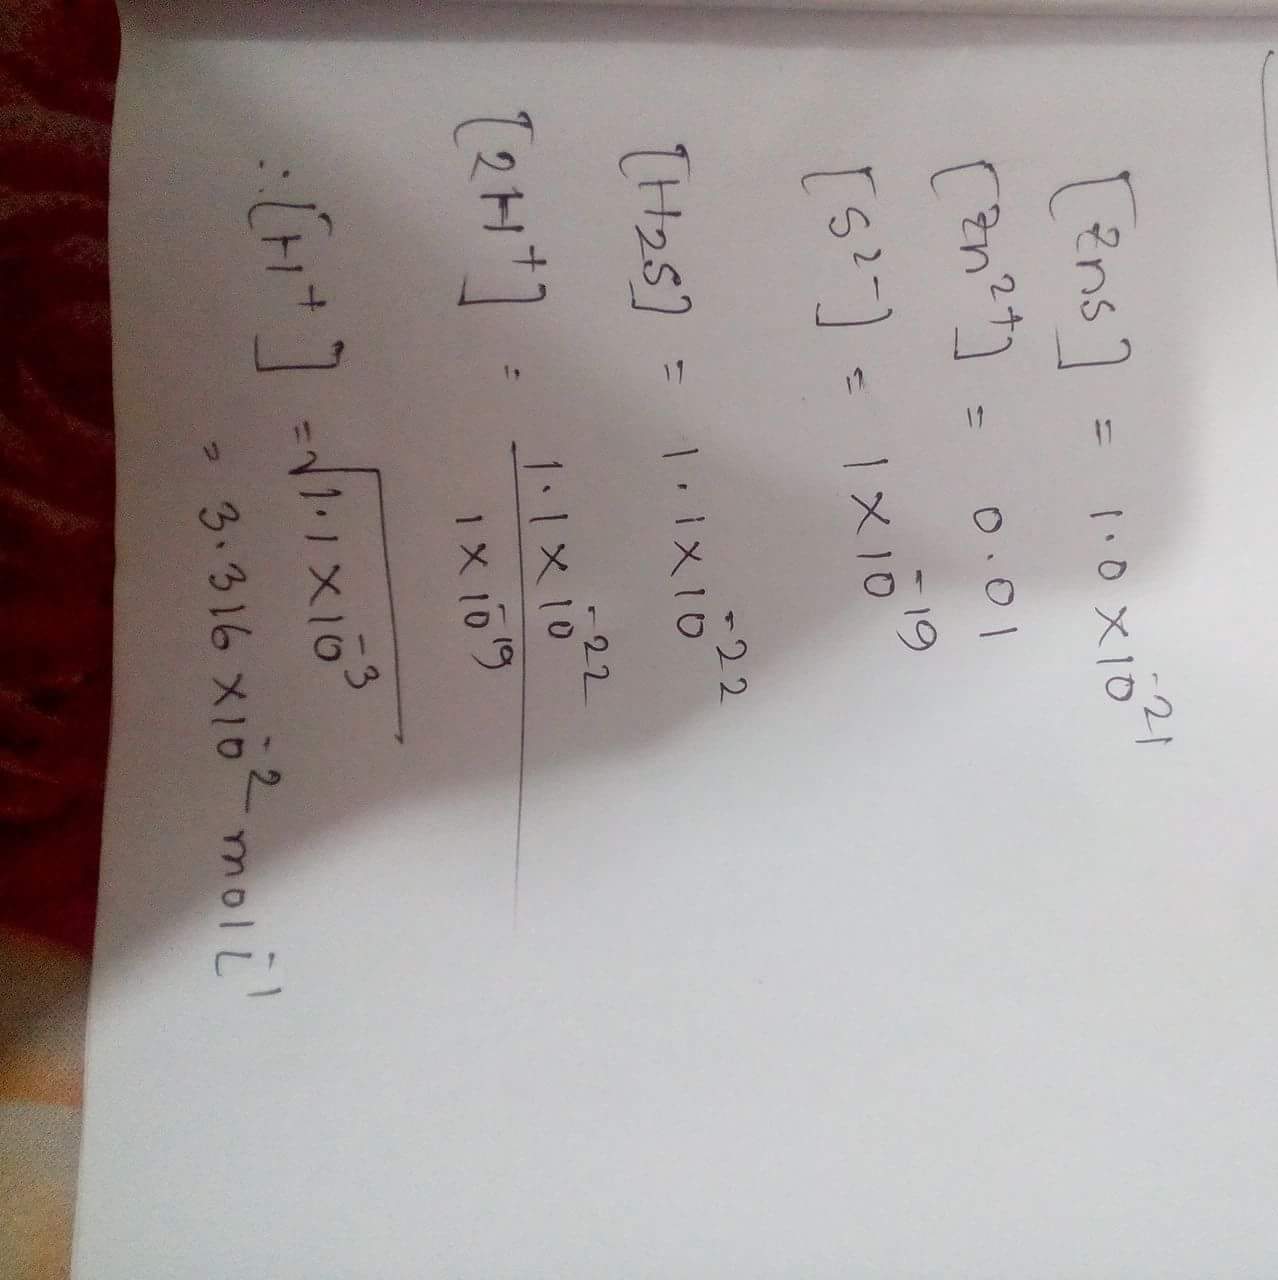 [ZnS] = 1.0 × 10⁻²¹
[Zn²⁺] = 0.01
[S²⁻] = 1 × 10⁻¹⁹
[H₂S] = 1.1 × 10⁻²²
[2H⁺] = 1.1 × 10⁻²² / 1 × 10⁻¹⁹
∴ [H⁺] = √1.1 × 10⁻³
= 3.316 × 10⁻² mol L⁻¹